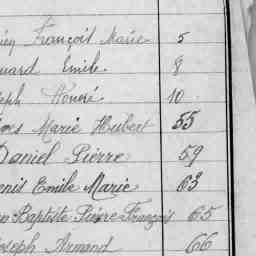 François Marie 5
Emile 8
Honoré 10
Marie Hubert 55
Daniel Pierre 59
Emile Marie 63
Baptiste Pierre François 65
Joseph Armand 66